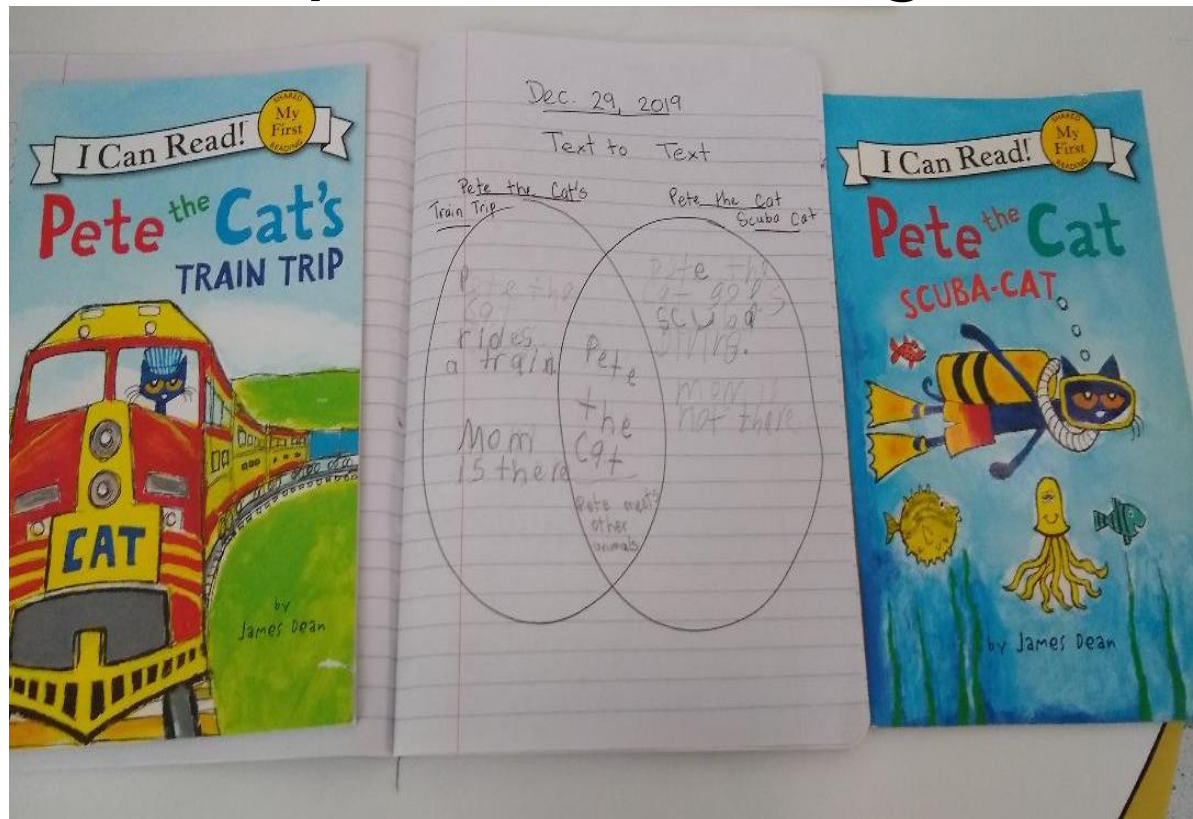 I Can Read!
SHARED
My
First
READING
Pete the Cat's
TRAIN TRIP
CAT
by
James Dean
Dec. 29, 2019
Text to Text
Pete the Cat's
Train Trip
Pete the Cat
Scuba Cat
Pete the
Cat
rides
a train
Mom
is there
Pete
the
Cat
Pete meets
other
animals
Pete the
Cat goes
scuba
diving.
Mom is
not there
I Can Read!
SHARED
My
First
READING
Pete the Cat
SCUBA-CAT
by James Dean